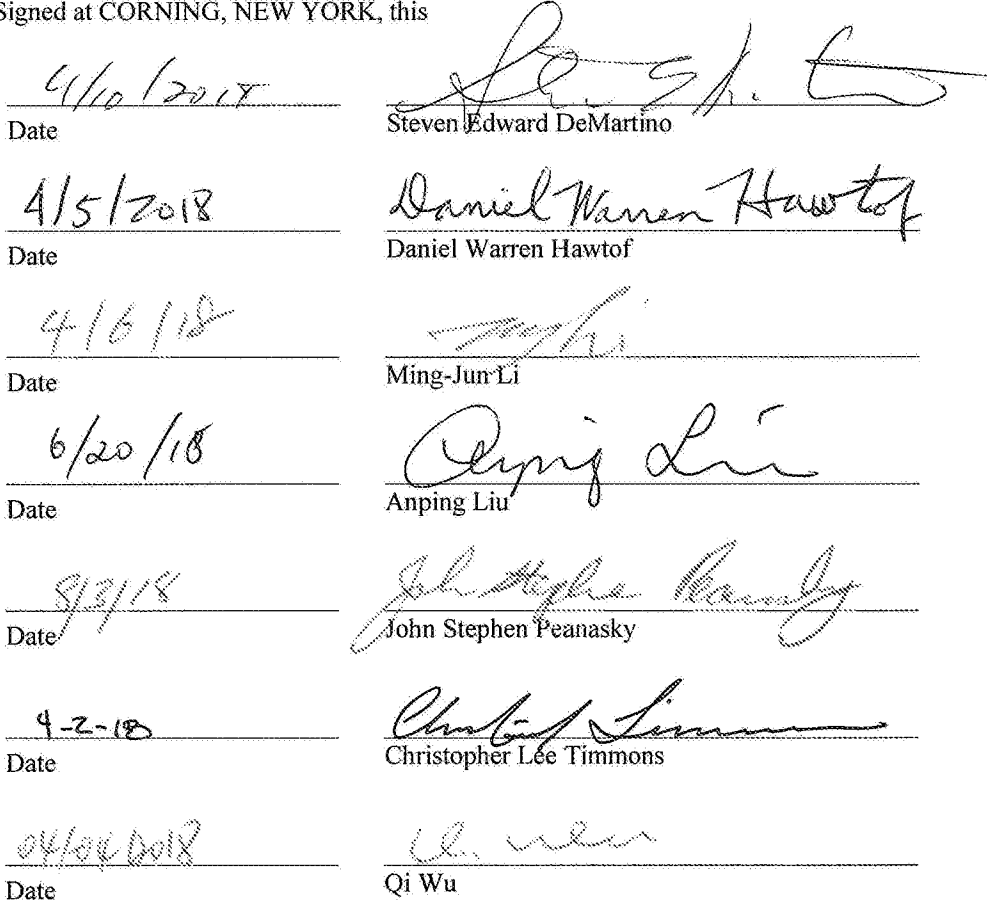 Signed at CORNING, NEW YORK, this
4/10/2018
Date Steven Edward DeMartino
4/5/2018 Daniel Warren Hawtof
Date Daniel Warren Hawtof
4/6/18
Date Ming-Jun Li
6/20/18 Anping Liu
Date Anping Liu
8/3/18 John Stephen Peanasky
Date John Stephen Peanasky
4-2-18 Christopher Timmons
Date Christopher Lee Timmons
04/04/2018 Qi Wu
Date Qi Wu